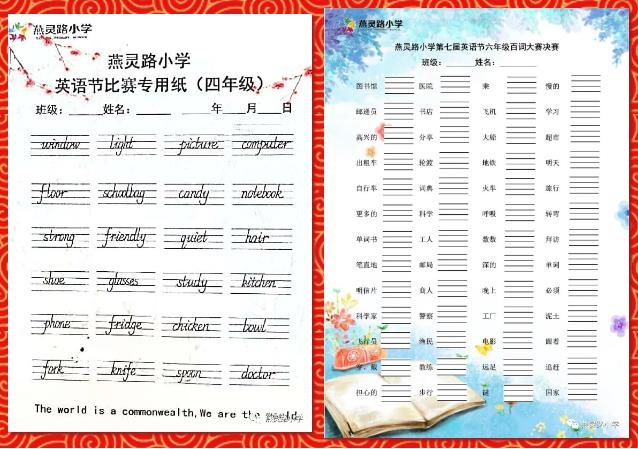 燕灵路小学
燕灵路小学
英语节比赛专用纸（四年级）
班级：姓名：年月日
window light picture computer
floor schoolbag candy notebook
strong friendly quiet hair
shoe glasses study kitchen
phone fridge chicken bowl
fork knife spoon doctor
The world is a commonwealth,We are the
燕灵路小学
燕灵路小学
燕灵路小学第七届英语节六年级百词大赛决赛
班级：姓名：
图书馆 医院 乘 慢的
邮递员 书店 飞机 学习
高兴的 分享 大船 超市
出租车 轮渡 地铁 明天
自行车 词典 火车 旅行
更多的 科学 呼吸 转弯
单词书 工人 数数 拜访
笔直地 邮局 深的 单词
明信片 商人 晚上 必须
科学家 警察 工厂 泥土
飞行员 渔民 电影
教练 远足 追赶
担心的 步行 谜 国家
燕灵路小学